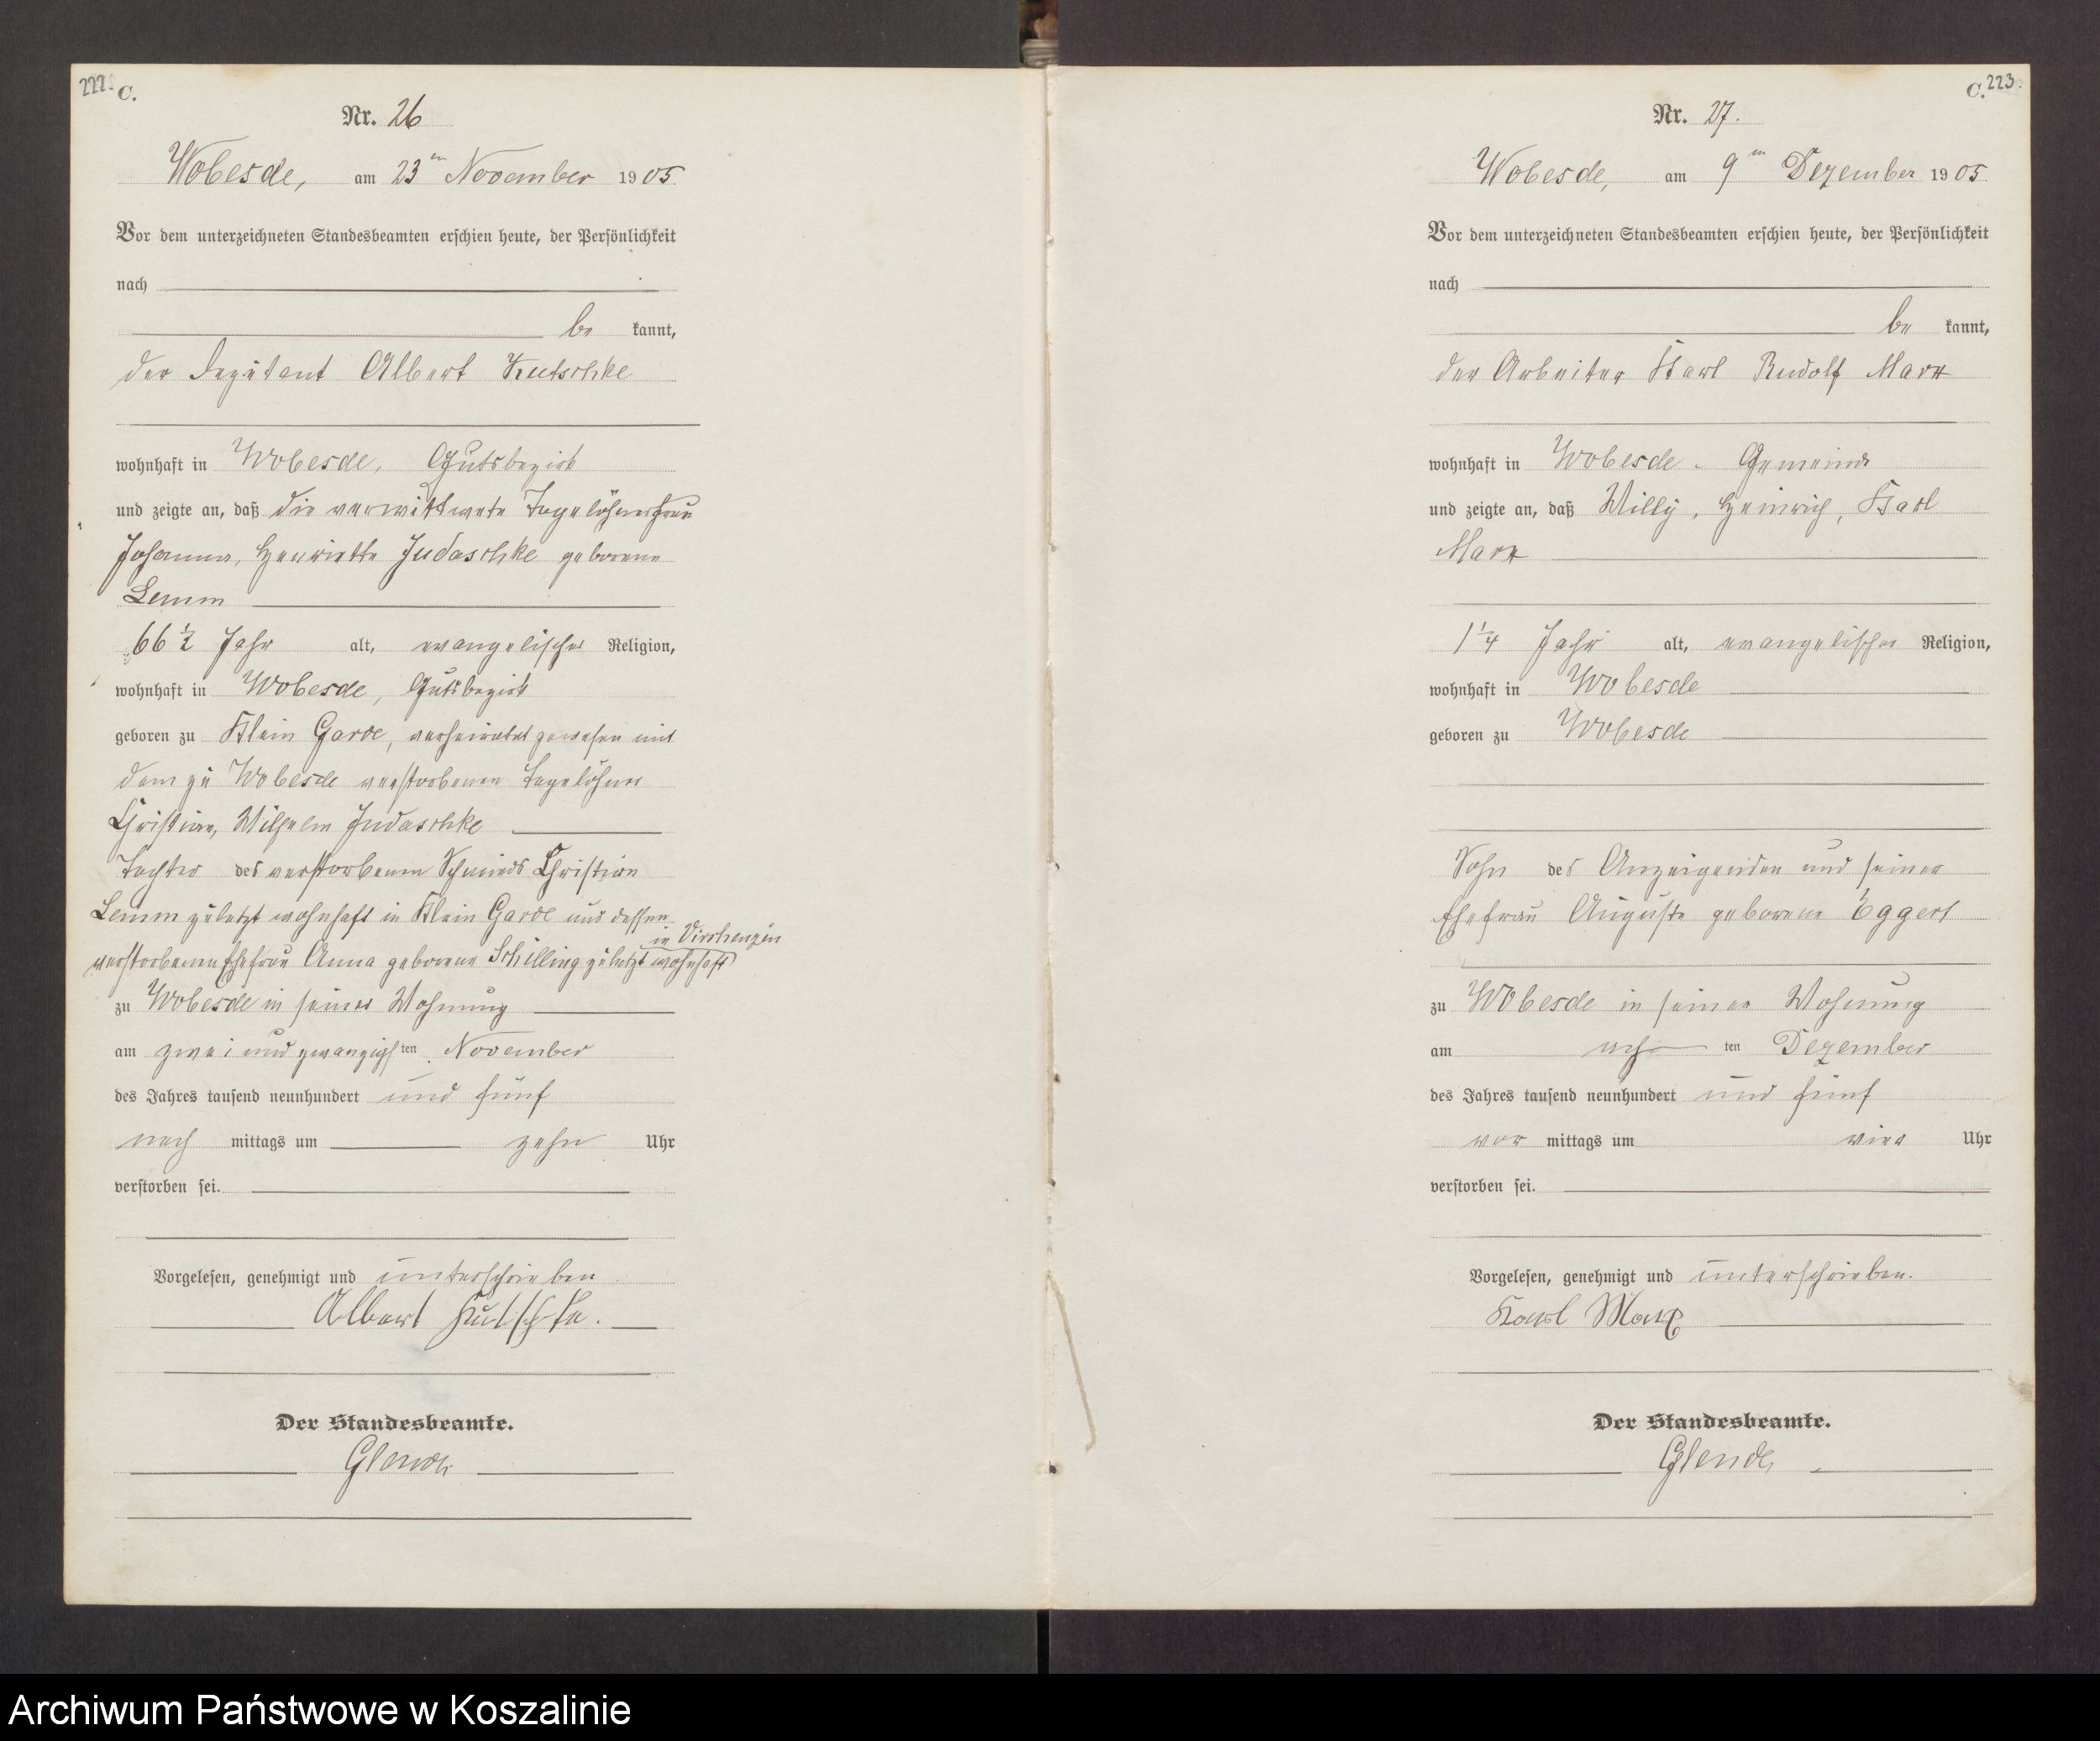 222. C.
Nr. 26
Wobesde, am 23ten November 1905
Vor dem unterzeichneten Standesbeamten erschien heute, der Persönlichkeit
nach
be kannt,
der Deputant Albert Kutschke
wohnhaft in Wobesde, Gutsbezirk
und zeigte an, daß die verwittwete Tagelöhnerfrau
Johanna, Henriette Judaschke geborene
Lemm
66 1/2 Jahr alt, evangelischer Religion,
wohnhaft in Wobesde, Gutsbezirk
geboren zu Klein Garde, verheiratet gewesen mit
dem zu Wobesde verstorbenen Tagelöhner
Christian, Wilhelm Judaschke
Tochter des verstorbenen Schmieds Christian
Lemm zuletzt wohnhaft in Klein Garde und dessen
in Virchenzin
verstorbenen Ehefrau Anna geborene Schilling zuletzt wohnhaft
zu Wobesde in seiner Wohnung
am zwei und zwanzigsten November
des Jahres tausend neunhundert und fünf
nach mittags um zehn Uhr
verstorben sei.
Vorgelesen, genehmigt und unterschrieben
Albert Kutschke.
Der Standesbeamte.
C. 223.
Nr. 27.
Wobesde, am 9ten Dezember 1905
Vor dem unterzeichneten Standesbeamten erschien heute, der Persönlichkeit
nach
be kannt,
der Arbeiter Karl Rudolf Marx
wohnhaft in Wobesde. Gemeinde
und zeigte an, daß Willy, Heinrich, Karl
Marx
1 1/4 Jahr alt, evangelischer Religion,
wohnhaft in Wobesde
geboren zu Wobesde
Sohn des Anzeigenden und seiner
Ehefrau Auguste geborene Eggert
zu Wobesde in seiner Wohnung
am achten Dezember
des Jahres tausend neunhundert und fünf
vor mittags um vier Uhr
verstorben sei.
Vorgelesen, genehmigt und unterschrieben.
Karl Marx
Der Standesbeamte.
Archiwum Państwowe w Koszalinie